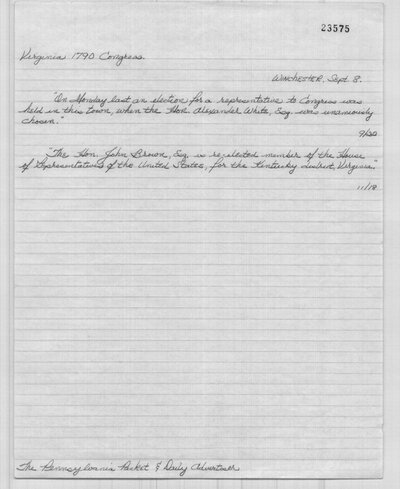 23575
Virginia 1790 Congress.
WINCHESTER, Sept. 8.
"On Monday last an election for a representative to Congress was
held in this town, when the Hon. Alexander White, Esq. was unaniously
chosen."
9/20
"The Hon. John Brown, Esq. is re-elected member of the House
of Representatives of the United States, for the Kentucky district, Virginia."
11/18
The Pennsylvania Packet & Daily Advertiser